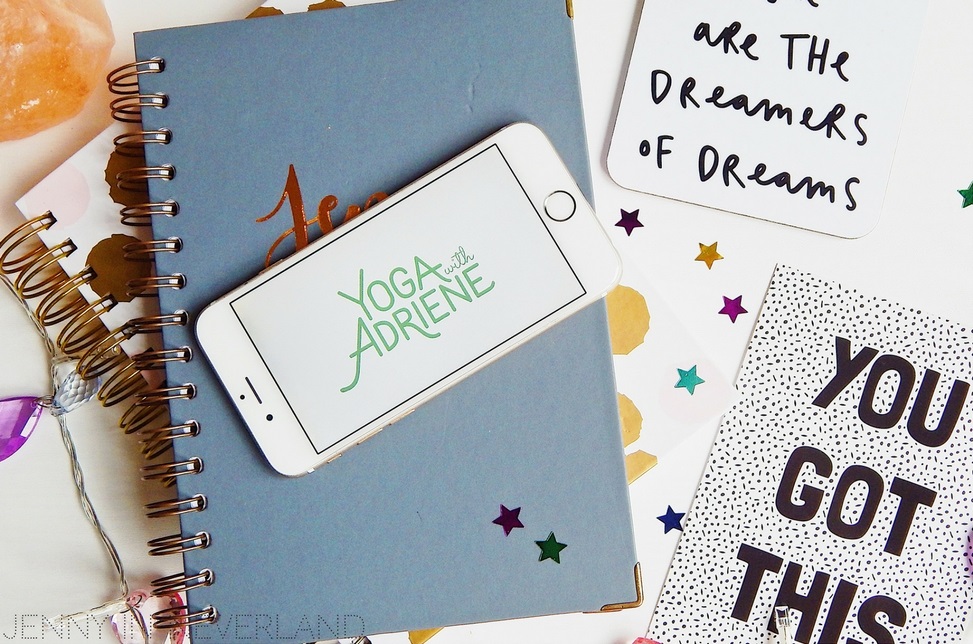 ARE THE
DREAMERS
OF DREAMS
YOGA with
ADRIENE
YOU
GOT
THIS
JENNY IN NEVERLAND